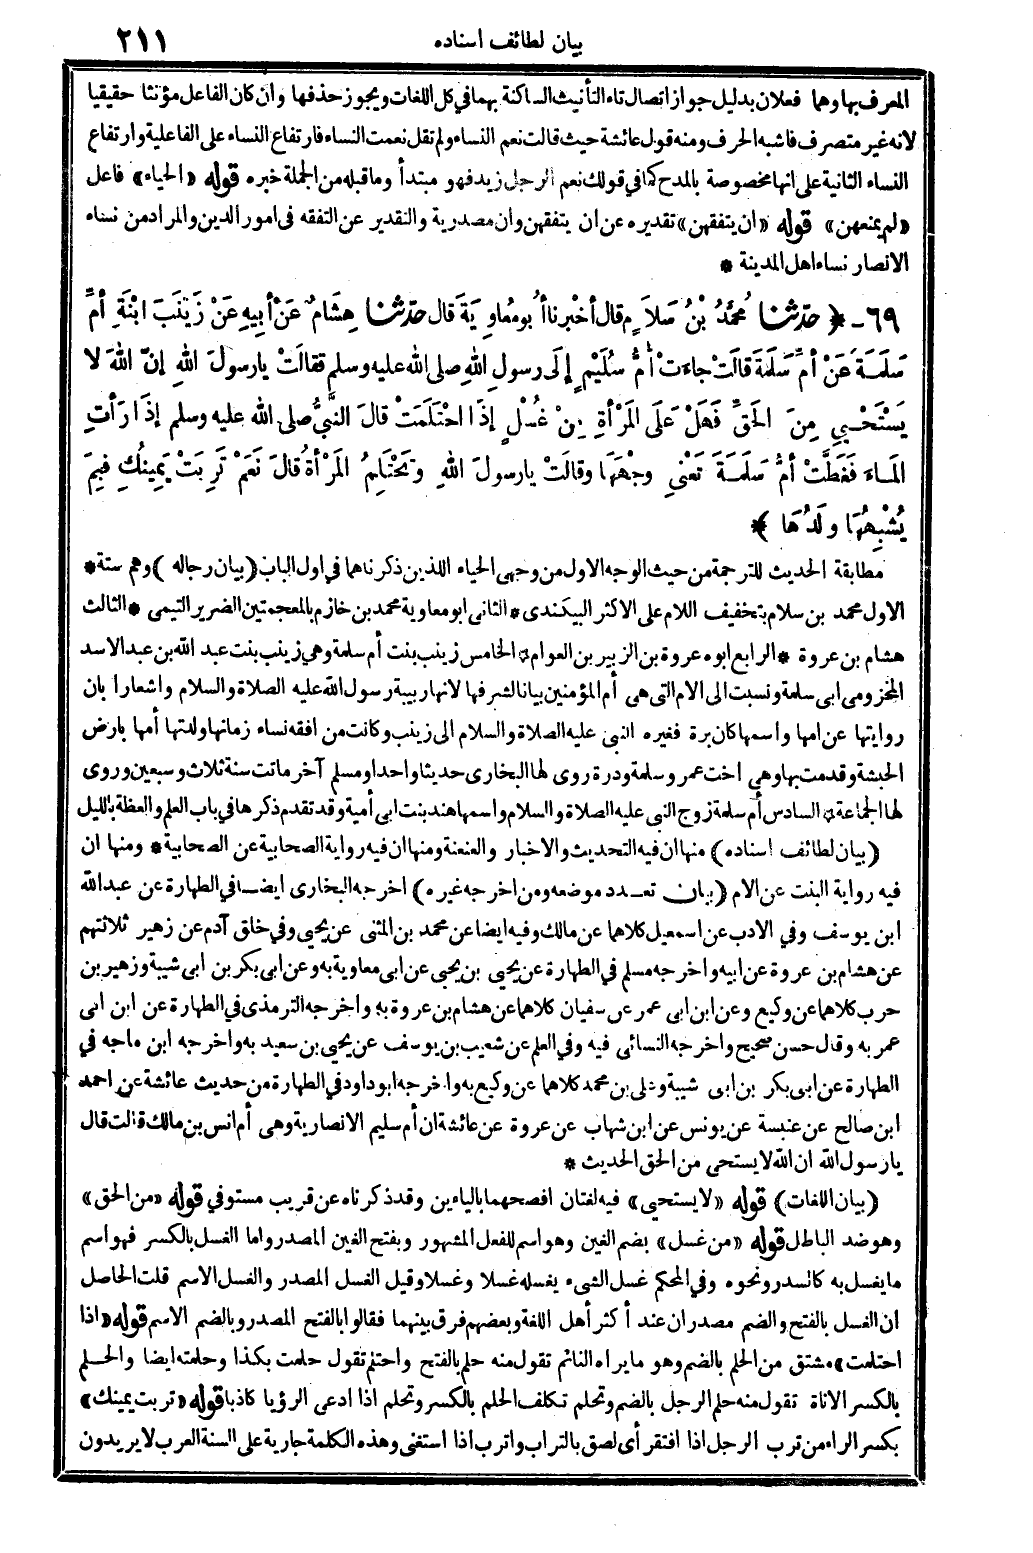 بيان لطائف اسناده
٢١١
المعرف بها وهما فعلان بدليل جواز اتصال تاء التأنيث الساكنة بهما في كل اللغات ويجوز حذفها وان كان الفاعل مؤنثا حقيقيا
لانه غير متصرف فاشبه الحرف ومنه قول عائشة حيث قالت نعم النساء ولم تقل نعمت النساء فارتفاع النساء على الفاعلية وارتفاع
النساء الثانية على انها مخصوصة بالمدح كما في قولك نعم الرجل زيد فهو مبتدأ وما قبله من الجملة خبره قوله «الحياء» فاعل
«لم يمنعهن» قوله «ان يتفقهن» تقديره عن ان يتفقهن وان مصدرية والتقدير عن التفقه في امور الدين والمراد من نساء
الانصار نساء اهل المدينة *
٦٩ - ﴿ حَدَّثَنَا مُحَمَّدُ بْنُ سَلَامٍ قال أخْبرنا أبُو مُعَاوِيَةَ قال حَدَّثَنا هِشَامٌ عَنْ أبِيهِ عَنْ زَيْنَبَ ابْنَةِ أمِّ
سَلَمَةَ عَنْ أمِّ سَلَمَةَ قالَتْ جاءَتْ أُمُّ سُلَيْمٍ إلَى رسولِ اللهِ صلى الله عليه وسلم فقالَتْ يارسولَ اللهِ إنّ اللهَ لا
يَسْتَحْيِي مِنَ الحَقِّ فَهَلْ عَلَى المَرْأةِ مِنْ غُسْلٍ إذَا احْتَلَمَتْ قالَ النَّبيُّ صلى الله عليه وسلم إذَا رَأتِ
المَاءَ فَغَطَّتْ أمُّ سَلَمَةَ تَعْنِي وجْهَهَا وقالَتْ يارسولَ اللهِ وتَحْتَلِمُ المَرْأةُ قالَ نَعَمْ تَرِبَتْ يَمِينُكِ فَبِمَ
يُشْبِهُهَا ولَدُهَا ﴾ *
مطابقة الحديث للترجمة من حيث الوجه الاول من وجهي الحياء اللذين ذكرناهما في اول الباب (بيان رجاله) وهم ستة *
الاول محمد بن سلام بتخفيف اللام على الاكثر البيكندى * الثانى ابو معاوية محمد بن خازم بالمعجمتين الضرير التيمى * الثالث
هشام بن عروة * الرابع ابوه عروة بن الزبير بن العوام * الخامس زينب بنت أم سلمة وهي زينب بنت عبد الله بن عبد الاسد
المخزومى ابى سلمة ونسبت الى الام التى هى أم المؤمنين بيانا لشرفها لانها ربيبة رسول الله عليه الصلاة والسلام واشعارا بان
روايتها عن امها واسمها كان برة فغيره النبى عليه الصلاة والسلام الى زينب وكانت من افقه نساء زمانها ولدتها أمها بارض
الحبشة وقدمت بها وهي اخت عمر وسلمة ودرة روى لها البخارى حديثا واحدا ومسلم آخر ماتت سنة ثلاث وسبعين وروى
لها الجماعة * السادس أم سلمة زوج النبى عليه الصلاة والسلام واسمها هند بنت ابى أمية وقد تقدم ذكرها في باب العلم والعظة بالليل
(بيان لطائف اسناده) منها ان فيه التحديث والاخبار والعنعنة ومنها ان فيه رواية الصحابية عن الصحابية * ومنها ان
فيه رواية البنت عن الام (بيان تعدد موضعه ومن اخرجه غيره) اخرجه البخارى ايضا في الطهارة عن عبد الله
ابن يوسف وفي الادب عن اسمعيل كلاهما عن مالك وفيه ايضا عن محمد بن المثنى عن يحيى وفي خلق آدم عن زهير ثلاثتهم
عن هشام بن عروة عن ابيه واخرجه مسلم في الطهارة عن يحيى بن يحيى عن ابى معاوية به وعن ابى بكر بن ابى شيبة وزهير بن
حرب كلاهما عن وكيع وعن ابن ابى عمر عن سفيان كلاهما عن هشام بن عروة به واخرجه الترمذى في الطهارة عن ابن ابى
عمر به وقال حسن صحيح واخرجه النسائى فيه وفي العلم عن شعيب بن يوسف عن يحيى بن سعيد به واخرجه ابن ماجه في
الطهارة عن ابى بكر بن ابى شيبة وعلى بن محمد كلاهما عن وكيع به واخرجه ابو داود في الطهارة من حديث عائشة عن احمد
ابن صالح عن عنبسة عن يونس عن ابن شهاب عن عروة عن عائشة ان أم سليم الانصارية وهى أم انس بن مالك قالت قال
يارسول الله ان الله لا يستحى من الحق الحديث *
(بيان اللغات) قوله «لا يستحيى» فيه لغتان افصحهما بالياءين وقد ذكرناه عن قريب مستوفي قوله «من الحق»
وهو ضد الباطل قوله «من غسل» بضم الغين وهو اسم للفعل المشهور وبفتح الغين المصدر واما الغسل بالكسر فهو اسم
ما يغسل به كالسدر ونحوه وفي المحكم غسل الشيء يغسله غسلا وغسلا وقيل الغسل المصدر والغسل الاسم قلت الحاصل
ان الغسل بالفتح والضم مصدران عند أكثر أهل اللغة وبعضهم فرق بينهما فقالوا بالفتح المصدر وبالضم الاسم قوله «اذا
احتلمت» مشتق من الحلم بالضم وهو ما يراه النائم تقول منه حلم بالفتح واحتلم تقول حلمت بكذا وحلمته ايضا والحلم
بالكسر الاناة تقول منه حلم الرجل بالضم وتحلم تكلف الحلم بالكسر وتحلم اذا ادعى الرؤيا كاذبا قوله «تربت يمينك»
بكسر الراء من ترب الرجل اذا افتقر أى لصق بالتراب واترب اذا استغنى وهذه الكلمة جارية على السنة العرب لا يريدون